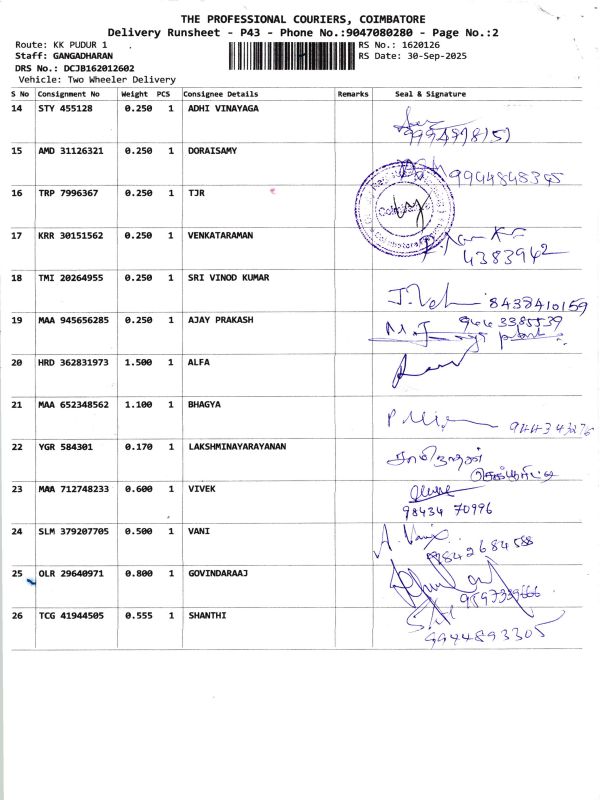 THE PROFESSIONAL COURIERS, COIMBATORE
Delivery Runsheet - P43 - Phone No.:9047080280 - Page No.:2
Route: KK PUDUR 1 RS No.: 1620126
Staff: GANGADHARAN RS Date: 30-Sep-2025
DRS No.: DCJB162012602
Vehicle: Two Wheeler Delivery
S No Consignment No Weight PCS Consignee Details Remarks Seal & Signature
14 STY 455128 0.250 1 ADHI VINAYAGA
15 AMD 31126321 0.250 1 DORAISAMY
9944848345
16 TRP 7996367 0.250 1 TJR
17 KRR 30151562 0.250 1 VENKATARAMAN
4383942
18 TMI 20264955 0.250 1 SRI VINOD KUMAR
8438410159
19 MAA 945656285 0.250 1 AJAY PRAKASH
9443385539
20 HRD 362831973 1.500 1 ALFA
21 MAA 652348562 1.100 1 BHAGYA
22 YGR 584301 0.170 1 LAKSHMINAYARAYANAN
23 MAA 712748233 0.600 1 VIVEK
98434 70996
24 SLM 379207705 0.500 1 VANI
A. Vani
9842684588
25 OLR 29640971 0.800 1 GOVINDARAAJ
26 TCG 41944505 0.555 1 SHANTHI
9944893305